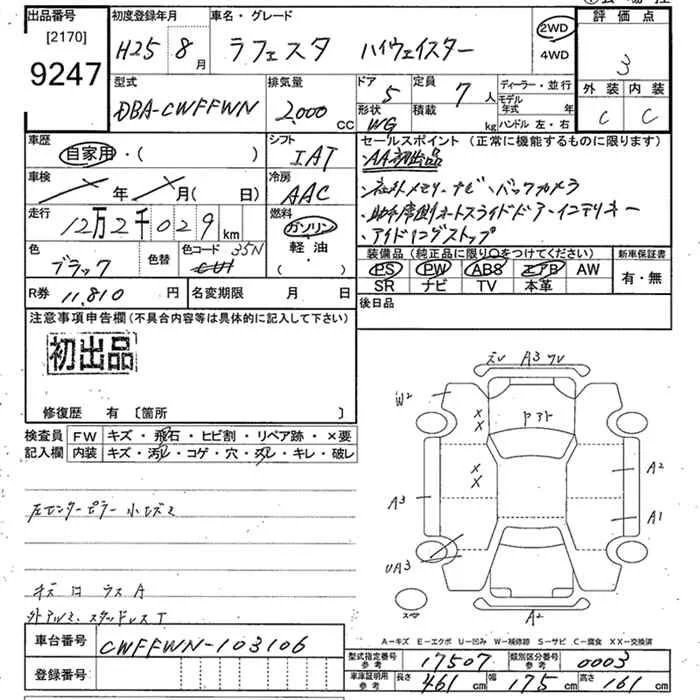 出品番号
[2170]
9247
初度登録年月
H25 8 月
車名・グレード
ラフェスタ ハイウェイスター
2WD
4WD
評価点
3
外装 内装
C C
型式
DBA-CWFFWN
排気量
2,000 CC
ドア
5
形状
WG
定員
7 人
積載
kg
ディーラー・並行
モデル年式 年
ハンドル 左・右
車歴
自家用・( )
シフト
IAT
セールスポイント (正常に機能するものに限ります)
・AA初出品
・社外メモリーナビ・バックカメラ
・助手席側オートスライドドア・インテリキー
・アイドリングストップ
車検
年 月( 日)
冷房
AAC
走行
12万2千029 km
燃料
ガソリン
軽油
( )
色
ブラック
色替
色コード 35N
R券 11,810 円
名変期限 月 日
装備品 (純正品に限り○をつけてください)
PS PW ABS エアB AW
SR ナビ TV 本革
新車保証書
有・無
後日品
注意事項申告欄(不具合内容等は具体的に記入して下さい)
初出品
修復歴 有 〔箇所 〕
検査員記入欄
FW キズ・飛石・ヒビ割・リペア跡・×要
内装 キズ・汚レ・コゲ・穴・スレ・キレ・破レ
A3
W2
X
X
X
X
A3
UA3
A2
A1
A2
スペア
左センターピラー小ヒズミ
キズ ロ ラス A
外アルミ、スタッドレス T
A−キズ E−エクボ U−凹み W−補修跡 S−サビ C−腐食 XX−交換済
車台番号
CWFFWN-103106
登録番号
型式指定番号 参考 17507
類別区分番号 参考 0003
車庫証明用 参考 長さ 461 cm 幅 175 cm 高さ 161 cm